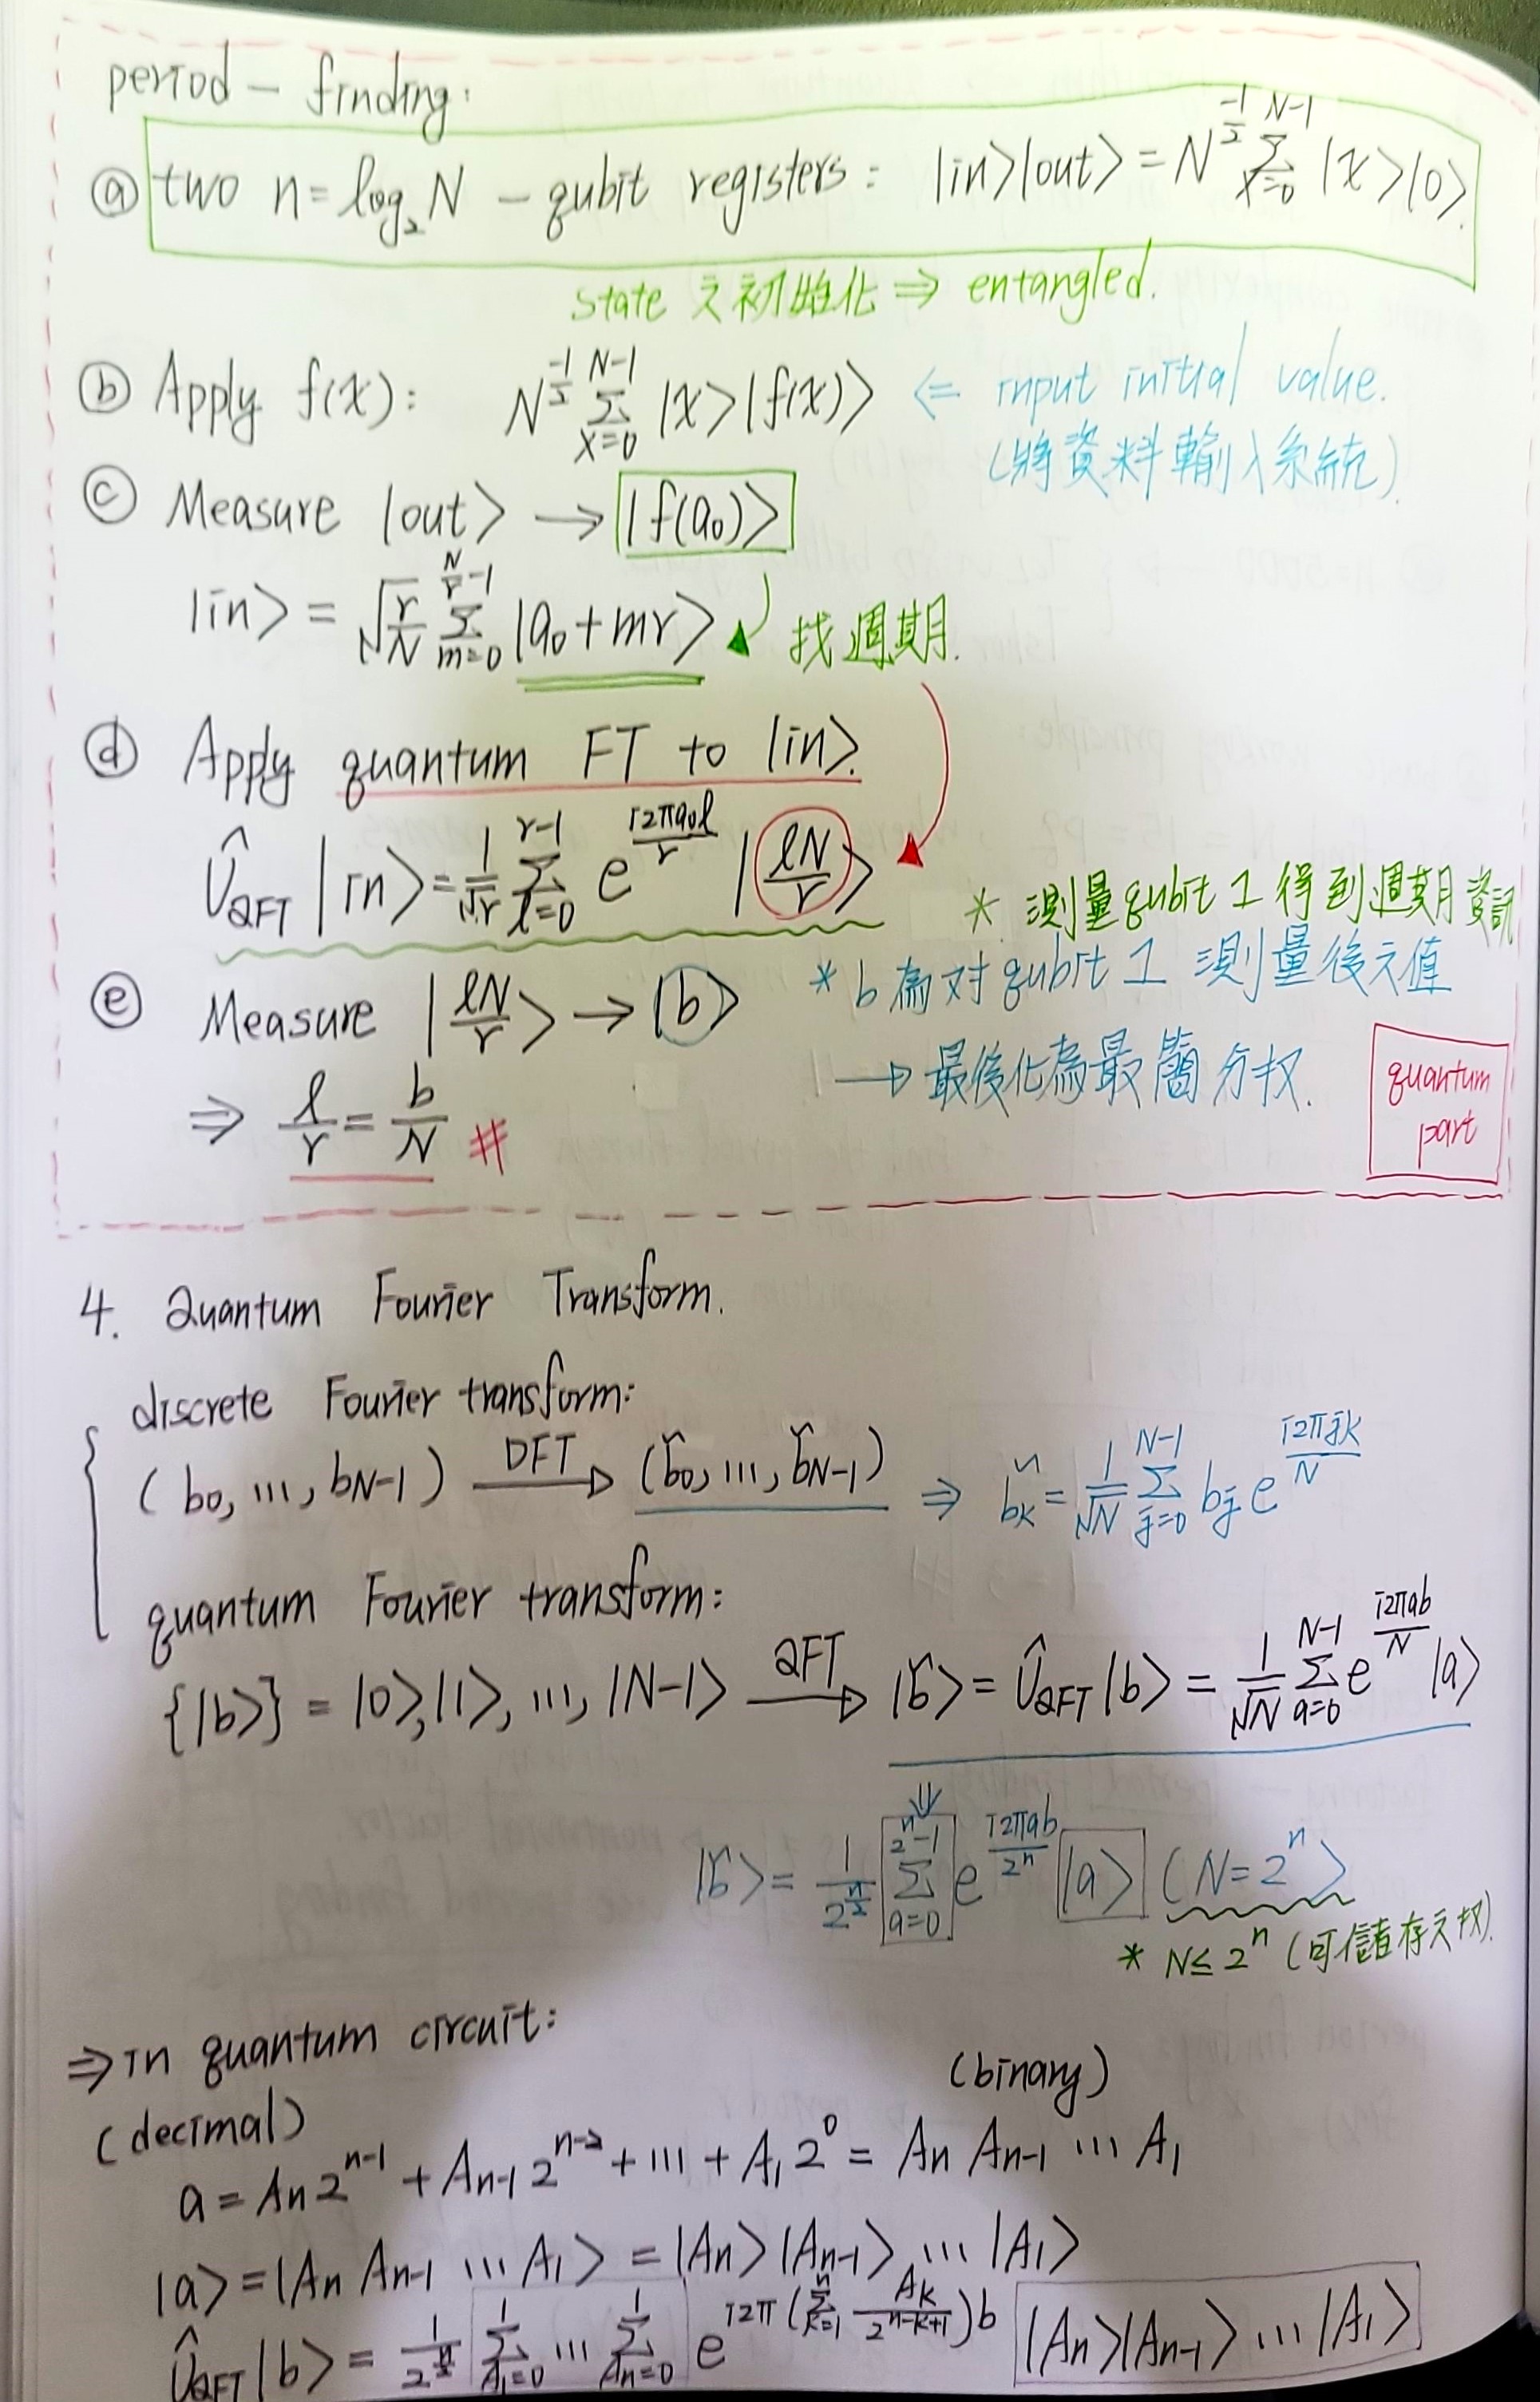 period - finding:
ⓐ two n = log₂N - qubit registers: |in>|out> = N^{-1/2} Σ_{x=0}^{N-1} |x>|0>.
state 之初始化 ⇒ entangled.
ⓑ Apply f(x): N^{-1/2} Σ_{x=0}^{N-1} |x>|f(x)> ⇐ input initial value.
(將資料輸入系統).
ⓒ Measure |out> → |f(a₀)>
|in> = √(r/N) Σ_{m=0}^{N/r-1} |a₀+mr> 找週期.
ⓓ Apply quantum FT to |in>.
Û_QFT |in> = 1/√r Σ_{l=0}^{r-1} e^{i2πa₀l/r} |lN/r>
* 測量qubit 1 得到週期資訊
ⓔ Measure |lN/r> → |b> * b為对qubit 1 測量後之值
→ 最後化為最簡分数.
quantum
part
⇒ l/r = b/N #
4. Quantum Fourier Transform.
discrete Fourier transform:
(b₀, ..., b_{N-1}) DFT→ (b̆₀, ..., b̆_{N-1}) ⇒ b̆_k = 1/√N Σ_{j=0}^{N-1} b_j e^{i2πjk/N}
quantum Fourier transform:
{|b>} = |0>,|1>, ..., |N-1> QFT→ |b̆> = Û_QFT |b> = 1/√N Σ_{a=0}^{N-1} e^{i2πab/N} |a>
⇓
|b̆> = 1/2^{n/2} Σ_{a=0}^{2^n-1} e^{i2πab/2^n} |a> (N=2^n)
* N≤2^n (可儲存之数).
⇒ in quantum circuit:
(decimal) (binary)
a = A_n 2^{n-1} + A_{n-1} 2^{n-2} + ... + A₁ 2⁰ = A_n A_{n-1} ... A₁
|a> = |A_n A_{n-1} ... A₁> = |A_n>|A_{n-1}> ... |A₁>
Û_QFT |b> = 1/2^{n/2} Σ_{A₁=0}^{1} ... Σ_{A_n=0}^{1} e^{i2π(Σ_{k=1}^{n} A_k/2^{n-k+1})b} |A_n>|A_{n-1}> ... |A₁>